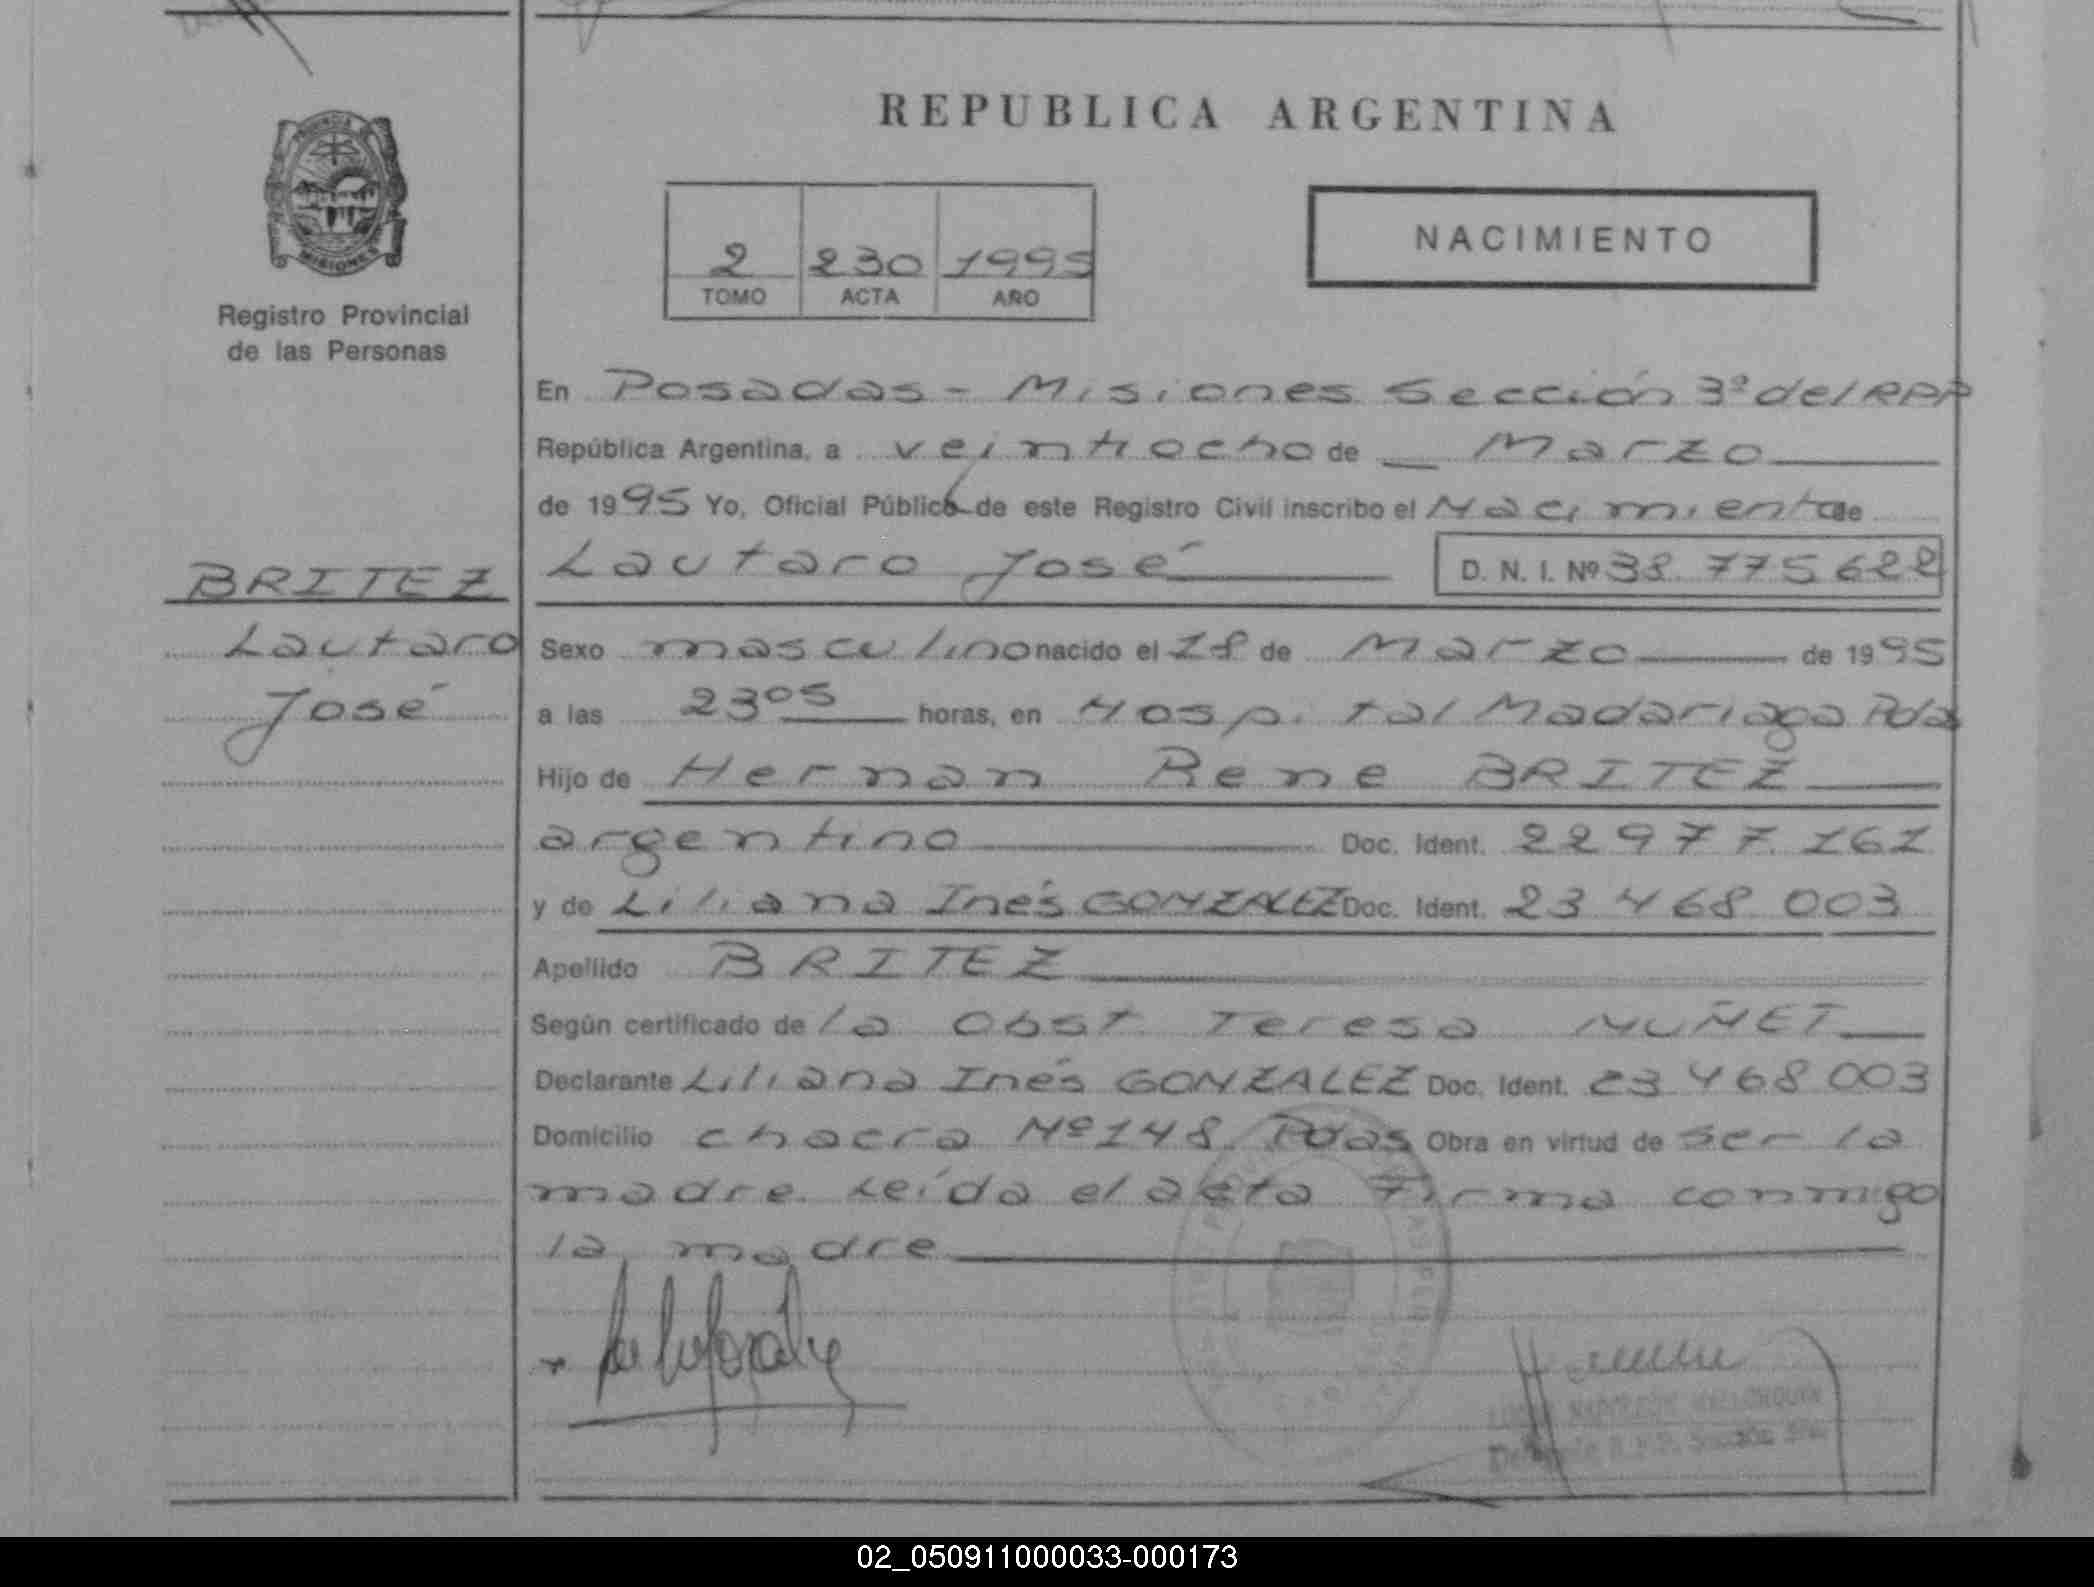 REPUBLICA ARGENTINA
PROVINCIA DE
MISIONES
Registro Provincial
de las Personas
2 230 1995
TOMO ACTA AÑO
NACIMIENTO
En Posadas - Misiones Sección 3º del RPP
República Argentina, a veintiocho de Marzo
de 1995 Yo, Oficial Público de este Registro Civil inscribo el Nacimiento de
Lautaro José D. N. I. Nº 38 775 622
BRITEZ
Lautaro
José
Sexo masculino nacido el 18 de Marzo de 1995
a las 23 05 horas, en Hospital Madariaga Pdas
Hijo de Hernan Rene BRITEZ
argentino Doc. Ident. 22 977 161
y de Liliana Inés GONZALEZ Doc. Ident. 23 468 003
Apellido BRITEZ
Según certificado de la Obst Teresa MUÑET
Declarante Liliana Inés GONZALEZ Doc. Ident. 23 468 003
Domicilio chacra Nº 148 Pdas Obra en virtud de ser la
madre. Leída el acta Firma conmigo
la madre
02_050911000033-000173